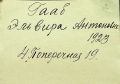 Гааб
Эльвира Антоновна
1923
4 Поперечная 19